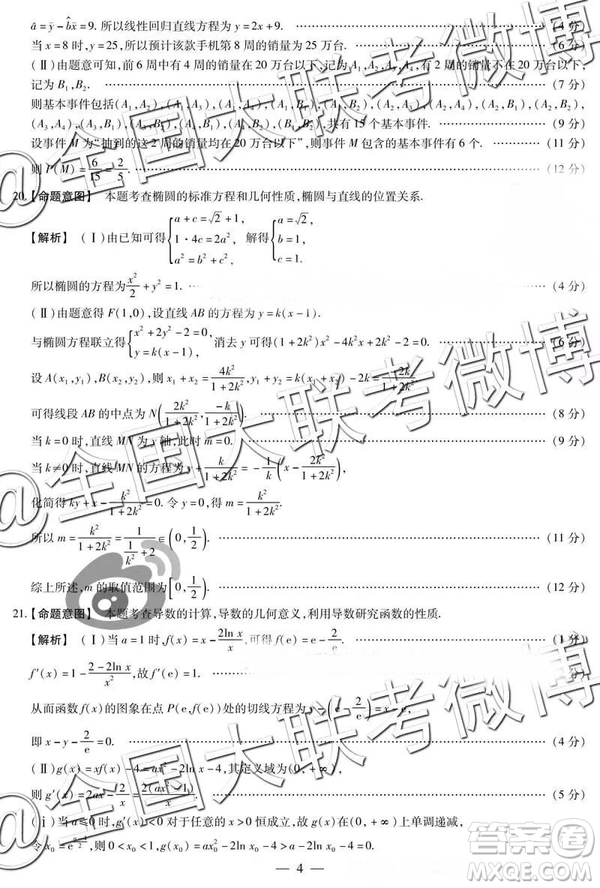 â = ȳ - b̂x̄ = 9. 所以线性回归直线方程为 y = 2x + 9. (4 分)
当 x = 8 时, y = 25, 所以预计该款手机第 8 周的销量为 25 万台. (6 分)
(Ⅱ)由题意可知, 前 6 周中有 4 周的销量在 20 万台以下, 记为 A₁, A₂, A₃, A₄, 有 2 周的销量不在 20 万台以下,
记为 B₁, B₂. (7 分)
则基本事件包括(A₁, A₂), (A₁, A₃), (A₁, A₄), (A₁, B₁), (A₁, B₂), (A₂, A₃), (A₂, A₄), (A₂, B₁), (A₂, B₂),
(A₃, A₄), (A₃, B₁), (A₃, B₂), (A₄, B₁), (A₄, B₂), (B₁, B₂), 共有 15 个基本事件. (9 分)
设事件 M 为“抽到的这 2 周的销量均在 20 万台以下”, 则事件 M 包含的基本事件有 6 个. (11 分)
则 P(M) = 6/15 = 2/5. (12 分)
20.【命题意图】 本题考查椭圆的标准方程和几何性质, 椭圆与直线的位置关系.
【解析】 (Ⅰ)由已知可得 { a + c = √2 + 1, 1·4c = 2a², a² = b² + c², 解得 { a = √2, b = 1, c = 1.
所以椭圆的方程为 x²/2 + y² = 1. (4 分)
(Ⅱ)由题意得 F(1,0), 设直线 AB 的方程为 y = k(x - 1).
与椭圆方程联立得 { x² + 2y² - 2 = 0, y = k(x - 1), 消去 y 可得 (1 + 2k²)x² - 4k²x + 2k² - 2 = 0. (6 分)
设 A(x₁, y₁), B(x₂, y₂), 则 x₁ + x₂ = 4k²/(1 + 2k²), y₁ + y₂ = k(x₁ + x₂) - 2k = -2k/(1 + 2k²).
可得线段 AB 的中点为 N(2k²/(1 + 2k²), -k/(1 + 2k²)). (8 分)
当 k = 0 时, 直线 MN 为 y 轴, 此时 m = 0. (9 分)
当 k ≠ 0 时, 直线 MN 的方程为 y + k/(1 + 2k²) = -1/k (x - 2k²/(1 + 2k²)),
化简得 ky + x - k²/(1 + 2k²) = 0. 令 y = 0, 得 m = k²/(1 + 2k²).
所以 m = k²/(1 + 2k²) = 1/(1/k² + 2) ∈ (0, 1/2). (11 分)
综上所述, m 的取值范围为 [0, 1/2). (12 分)
21.【命题意图】 本题考查导数的计算, 导数的几何意义, 利用导数研究函数的性质.
【解析】 (Ⅰ)当 a = 1 时, f(x) = x - 2ln x/x, 可得 f(e) = e - 2/e. (1 分)
f′(x) = 1 - (2 - 2ln x)/x², 故 f′(e) = 1.
从而函数 f(x) 的图象在点 P(e, f(e)) 处的切线方程为 y - (e - 2/e) = x - e,
即 x - y - 2/e = 0. (4 分)
(Ⅱ)g(x) = xf(x) - 4 = ax² - 2ln x - 4, 其定义域为 (0, +∞),
则 g′(x) = 2ax - 2/x = 2(ax² - 1)/x. (5 分)
(ⅰ)当 a ≤ 0 时, g′(x) < 0 对于任意的 x > 0 恒成立, 故 g(x) 在 (0, +∞) 上单调递减,
则 0 < x₀ < 1, g(x₀) = ax₀² - 2ln x₀ - 4 > a - 2ln x₀ - 4 = 0.
— 4 —
@全国大联考微博
@全国大联考微博
@全国大联考微博
答案圈
MXQE.COM